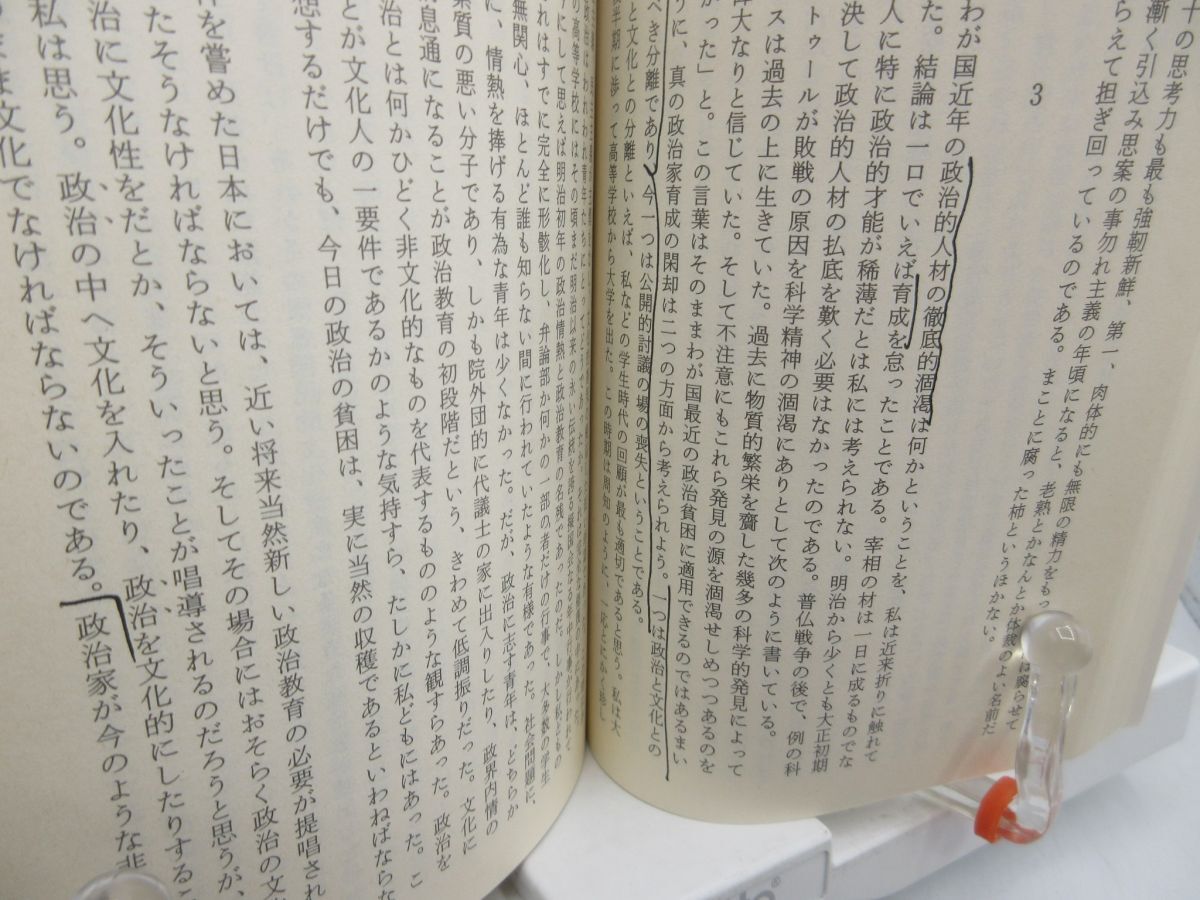 十の思考力も最も強靭新鮮、第一、肉体的にも無限の精力をもっ
漸く引込み思案の事勿れ主義の年頃になると、老熟とかなんとか体裁のよい名前だ
らえて担ぎ回っているのである。まことに腐った柿というほかない。
3
わが国近年の政治的人材の徹底的涸渇は何かということを、私は近来折りに触れて
た。結論は一口でいえば育成を怠ったことである。宰相の材は一日に成るものでな
人に特に政治的才能が稀薄だとは私には考えられない。明治から少くとも大正初期
決して政治的人材の払底を歎く必要はなかったのである。普仏戦争の後で、例の科
トゥールが敗戦の原因を科学精神の涸渇にありとして次のように書いている。
スは過去の上に生きていた。過去に物質的繁栄を齎した幾多の科学的発見によって
偉大なりと信じていた。そして不注意にもこれら発見の源を涸渇せしめつつあるのを
かった」と。この言葉はそのままわが国最近の政治貧困に適用できるのではあるまい
うに、真の政治家育成の閑却は二つの方面から考えられよう。一つは政治と文化との
べき分離であり、今一つは公開的討議の場の喪失ということである。
と文化との分離といえば、私などの学生時代の回顧が最も適切であると思う。私は大
後半期に渉って高等学校から大学を出た。この時期は周知のように、一応とにかく
の高等学校にはその頃まだ明治以来の永い伝統を誇る擬国会なる年中行事が行われて
にして思えば明治初年の政治情熱と政治教育の名残であったのだ。しかし私どもの
れはすでに完全に形骸化し、弁論部か何かの一部の者だけの行事で、大多数の学生
無関心、ほとんど誰も知らない間に行われていたような有様であった。社会問題に、
に、情熱を捧げる有為な青年は少くなかった。だが、政治に志す青年は、どちらか
素質の悪い分子であり、しかも院外団的に代議士の家に出入りしたり、政界内情の
消息通になることが政治教育の初段階だという、きわめて低調振りだった。文化に
治とは何かひどく非文化的なものを代表するもののような観すらあった。政治を
とが文化人の一要件であるかのような気持すら、たしかに私どもにはあった。こ
想するだけでも、今日の政治の貧困は、実に当然の収穫であるといわねばならな
を嘗めた日本においては、近い将来当然新しい政治教育の必要が提唱され
たそうなければならないと思う。そしてその場合にはおそらく政治の文
治に文化性をだとか、そういったことが唱導されるのだろうと思うが、
私は思う。政治の中へ文化を入れたり、政治を文化的にしたりするこ
まま文化でなければならないのである。政治家が今のような非